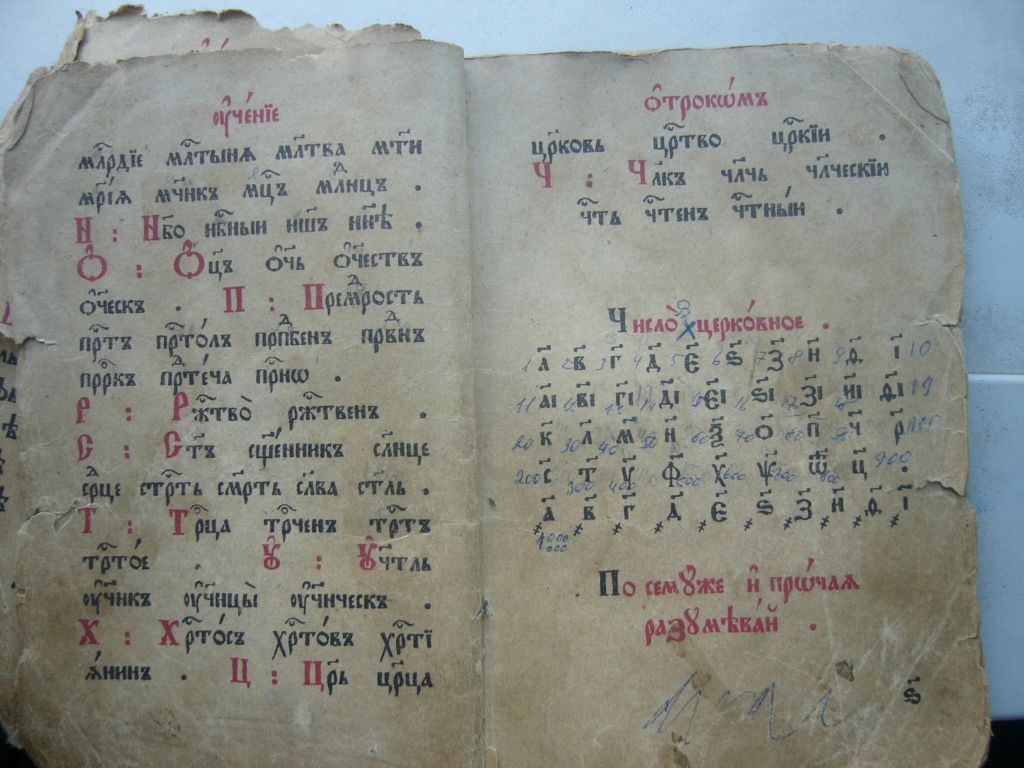 оуч҃е́нїе
мл҃рдїе мл҃тынѧ мл҃тва мт҃и
мр҃їѧ мч҃никъ мц҃ъ мл҃нцъ .
Н : Нб҃о нб҃ныи нш҃ъ нн҃ѣ .
Ѻ : Ѻц҃ъ ѻч҃ь ѻч҃ествъ
ѻч҃ескъ . П : Прем҃рость
пр҃тъ пр҃то́лъ прп҃бенъ прв҃нъ
прр҃къ пр҃те́ча пр҃нѡ .
Р : Рж҃тво̀ рж҃твенъ .
С : Ст҃ъ сщ҃енникъ сл҃нце
ср҃це стр҃ть смр҃ть сл҃ва ст҃ль .
Т : Тр҃ца тр҃ченъ тр҃тъ
тр҃то́е . Ꙋ : Ꙋч҃тль
оуч҃нкъ оуч҃ницы̀ оуч҃ническъ .
Х : Хр҃то́съ хр҃то́въ хр҃тї
ѧ́нинъ . Ц : Цр҃ь цр҃ца
ѻ҆трокѡ́мъ
цр҃ковь цр҃тво цр҃кїи .
Ч : Чл҃къ чл҃чь чл҃ческїи
чт҃ь чт҃енъ чт҃ныи .
Число̀ церко́вное .
1 а҃ 2 в҃ 3 г҃ 4 д҃ 5 є҃ 6 ѕ҃ 7 з҃ 8 и҃ 9 ѳ҃ і҃ 10
11 а҃і в҃і г҃і д҃і є҃і ѕ҃і з҃і и҃і ѳ҃і 19
20 к҃ 30 л҃ 40 м҃ 50 н҃ 60 ѯ҃ 70 ѻ҃ 80 п҃ ч҃ р҃ 100
200 с҃ 300 т҃ 400 у҃ 500 ф҃ 600 х҃ ѱ҃ ѿ҃ ц҃ 900 .
҂а҃ ҂в҃ ҂г҃ ҂д҃ ҂є҃ ҂ѕ҃ ҂з҃ ҂и҃ ҂ѳ҃ ҂і҃
По семꙋже и҆ прѡ́чаѧ
разꙋмѣва́й .
ѕ҃